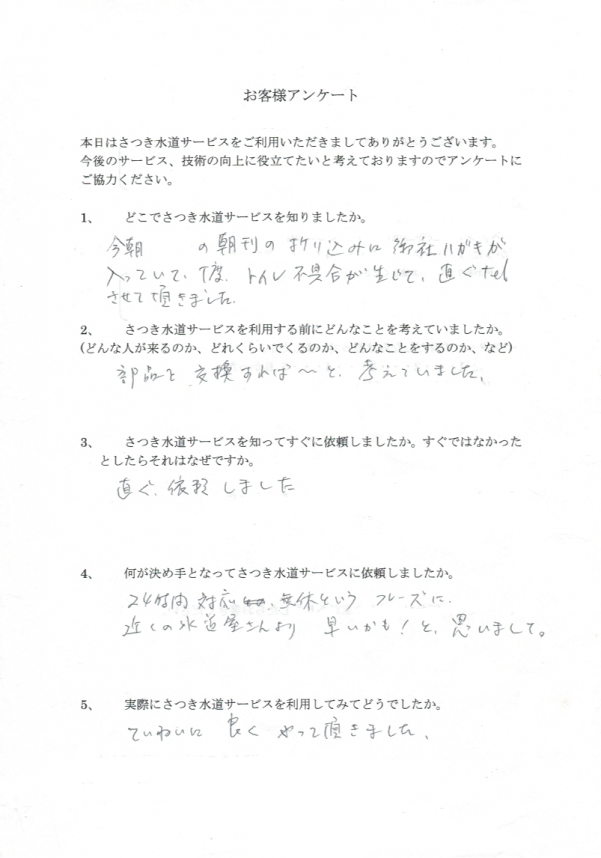 お客様アンケート
本日はさつき水道サービスをご利用いただきましてありがとうございます。
今後のサービス、技術の向上に役立てたいと考えておりますのでアンケートに
ご協力ください。
1、 どこでさつき水道サービスを知りましたか。
今朝 の朝刊の折り込みに御社ハガキが
入っていて、1度、トイレ不具合が生じて、直ぐtel
させて頂きました。
2、 さつき水道サービスを利用する前にどんなことを考えていましたか。
(どんな人が来るのか、どれくらいでくるのか、どんなことをするのか、など)
部品を交換すれば〜と、考えていました。
3、 さつき水道サービスを知ってすぐに依頼しましたか。すぐではなかった
としたらそれはなぜですか。
直ぐ、依頼しました
4、 何が決め手となってさつき水道サービスに依頼しましたか。
24時内対応、無休というフレーズに、
近くの水道屋さんより 早いかも!と、思いまして。
5、 実際にさつき水道サービスを利用してみてどうでしたか。
ていねいに 良く やって頂きました。